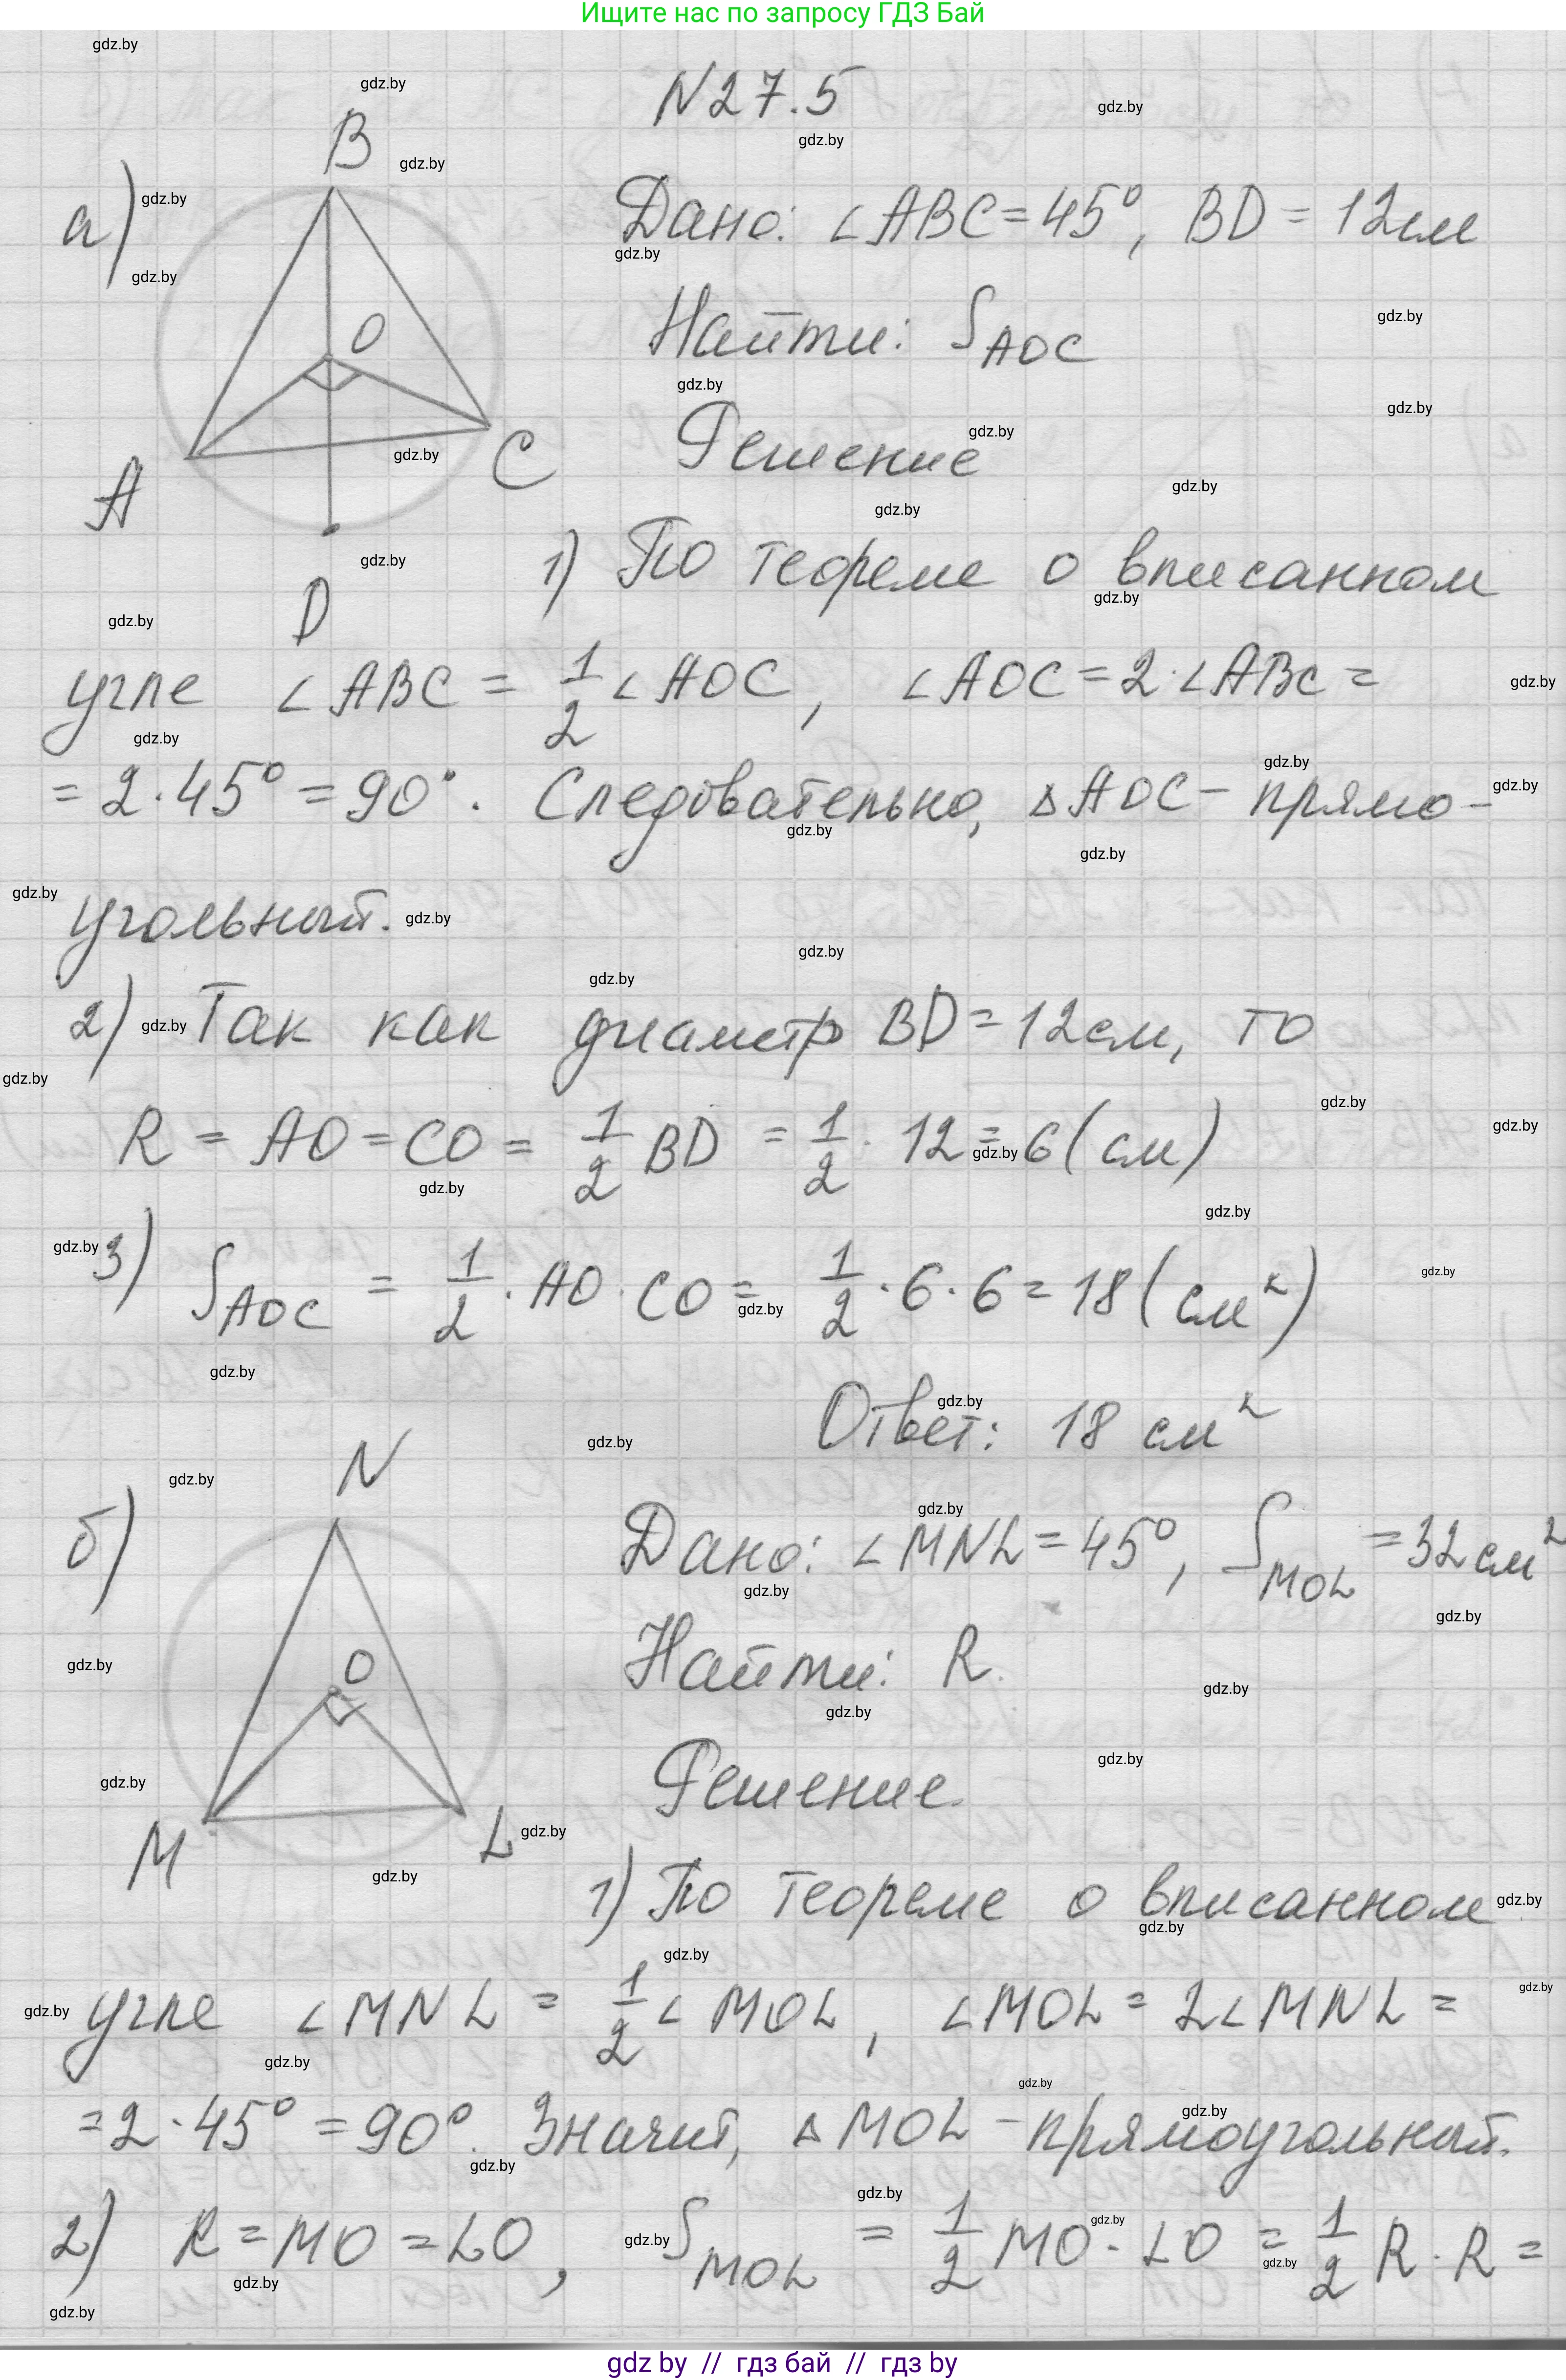 Ищите нас по запросу ГДЗ Бай
N27.5
а)
B
O
A
C
D
Дано: ∠ABC = 45°, BD = 12см
Найти: S_AOC
Решение
1) По теореме о вписанном
угле ∠ABC = 1/2 ∠AOC, ∠AOC = 2·∠ABC =
= 2·45° = 90°. Следовательно, △AOC – прямо-
угольный.
2) Так как диаметр BD = 12см, то
R = AO = CO = 1/2 BD = 1/2 · 12 = 6 (см)
3) S_AOC = 1/2 · AO · CO = 1/2 · 6 · 6 = 18 (см²)
Ответ: 18 см²
б)
N
O
M
L
Дано: ∠MNL = 45°, S_MOL = 32см²
Найти: R.
Решение.
1) По теореме о вписанном
угле ∠MNL = 1/2 ∠MOL, ∠MOL = 2∠MNL =
= 2·45° = 90°. Значит, △MOL – прямоугольный.
2) R = MO = LO, S_MOL = 1/2 MO · LO = 1/2 R · R =
gdz by // гдз бай // гдз by